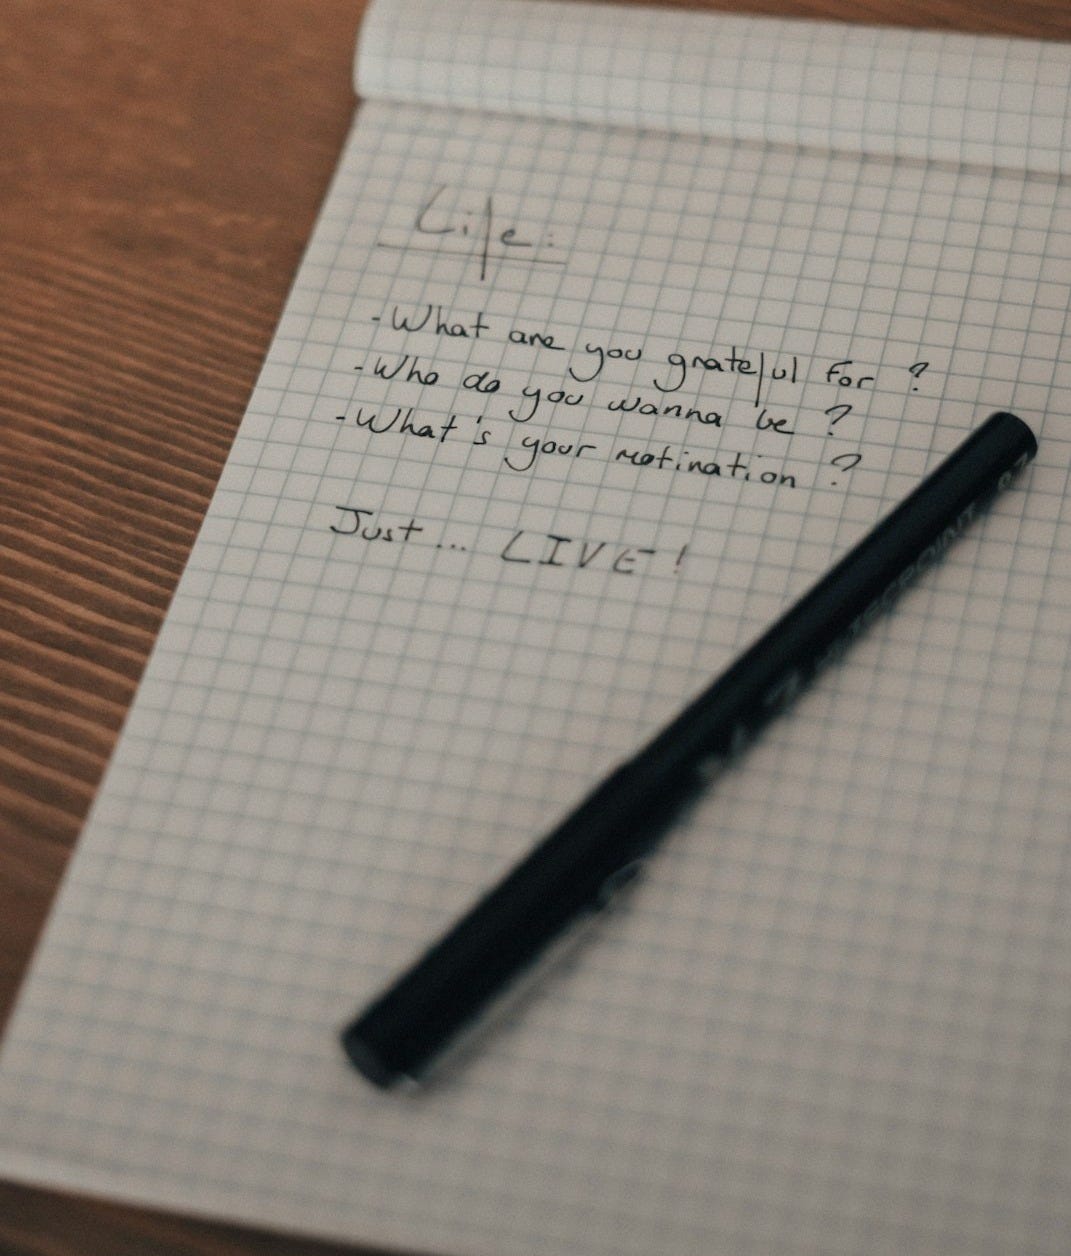 Life:
-What are you grateful for ?
-Who do you wanna be ?
-What's your motination ?
Just... LIVE!